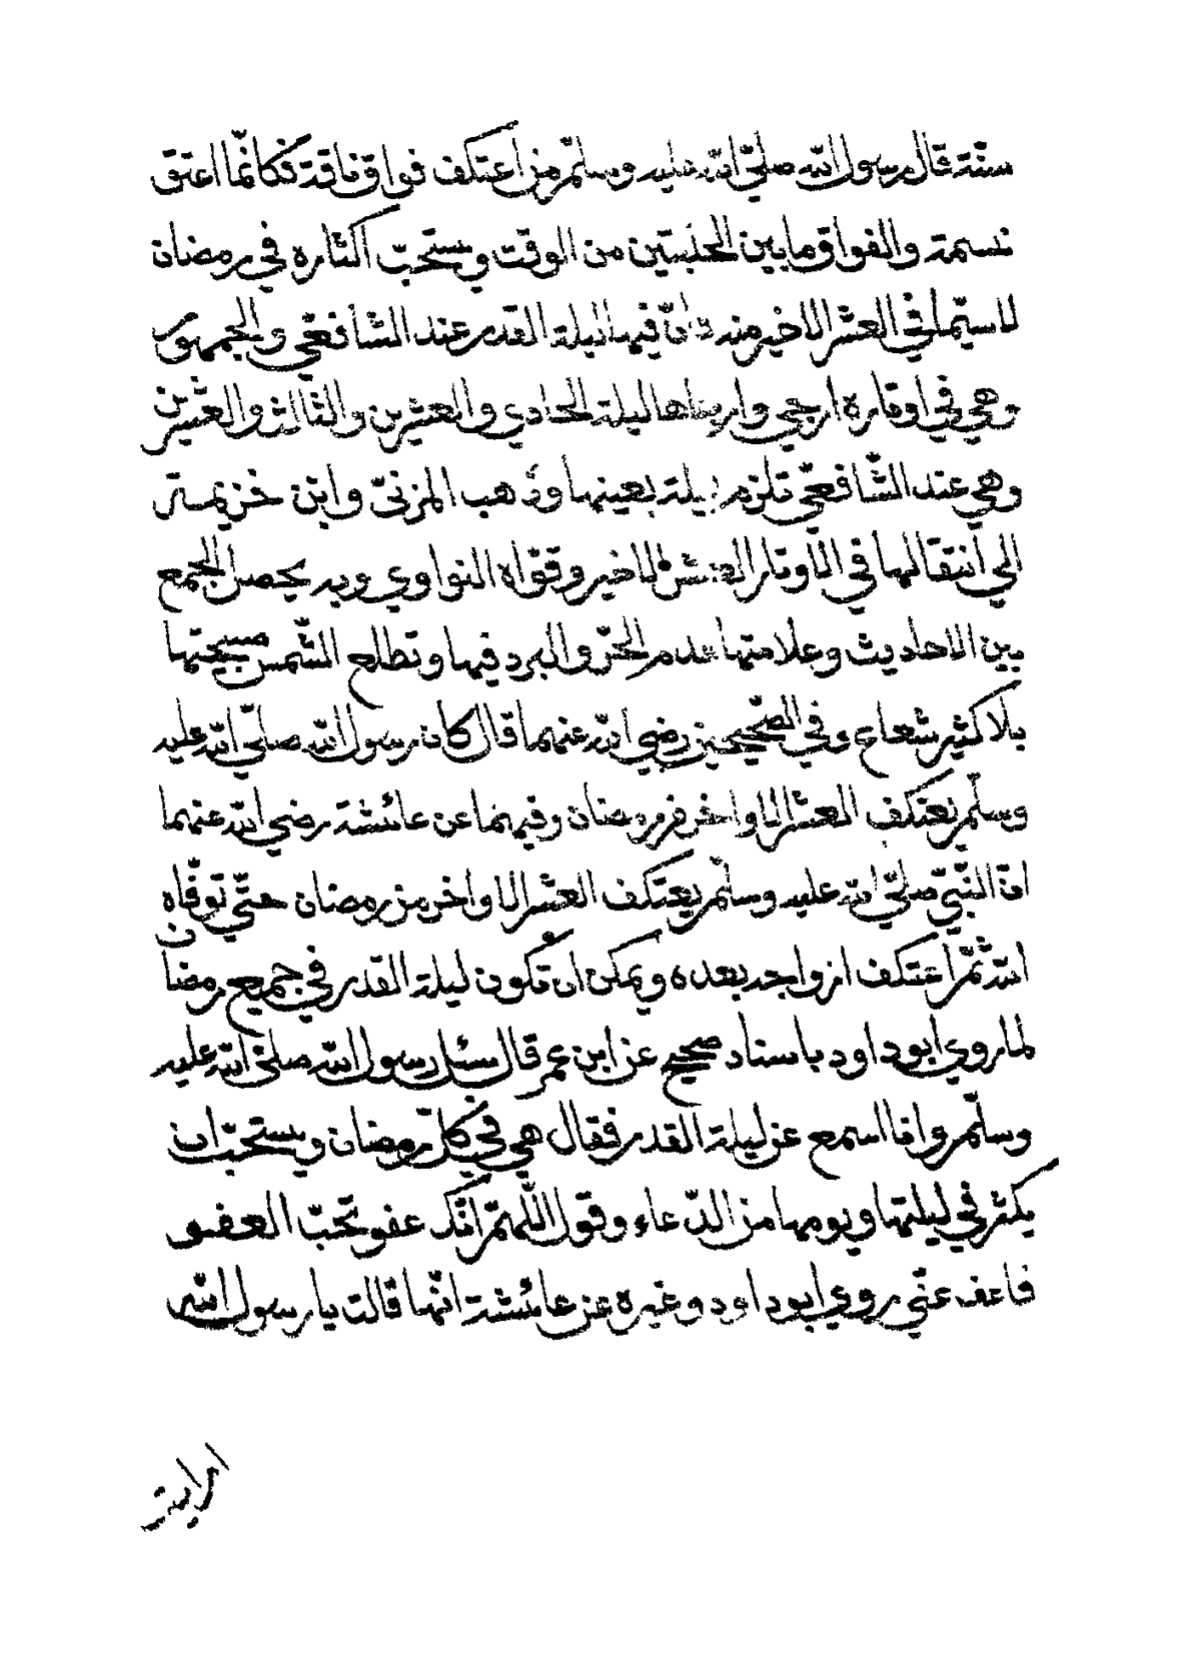 سنة قال رسول الله صلّى الله عليه وسلّم من اعتكف فواق ناقة فكانّما اعتق
نسمة والفواق ما بين الحلبتين من الوقت ويستحبّ اكثاره في رمضان
لاسيّما في العشر الاخير منه فانّ فيها ليلة القدر عند الشافعيّ والجمهور
وهي في اوتاره ارجي وارجاها ليلة الحادي والعشرين والثالث والعشرين
وهي عند الشّافعيّ تلزم ليلة بعينها وذهب المزنيّ وابن خزيمة
الي انتقالها في الاوتار العشر الاخير وقوّاه النواوي وبه يحصل الجمع
بين الاحاديث وعلامتها عدم الحرّ والبرد فيها وتطلع الشّمس صبيحتها
بلا كثير شعاع وفي الصّحيحين رضي الله عنهما قال كان رسول الله صلّي الله عليه
وسلّم يعتكف العشر الاواخر من رمضان وفيهما عن عائشة رضي الله عنهما
انّ النّبيّ صلّي الله عليه وسلّم يعتكف العشر الاواخر من رمضان حتّي توفّاه
الله ثمّ اعتكف ازواجه بعده ويمكن ان تكون ليلة القدر في جميع رمضان
لما روي ابو داود باسناد صحيح عن ابن عمر قال سئل رسول الله صلّى الله عليه
وسلّم وانا اسمع عن ليلة القدر فقال هي في كلّ رمضان ويستحبّ ان
يكثر في ليلتها ويومها من الدّعاء وقول اللّهمّ انّك عفو تحبّ العفو
فاعف عنّي روي ابو داود وغيره عن عائشة انّها قالت يا رسول الله